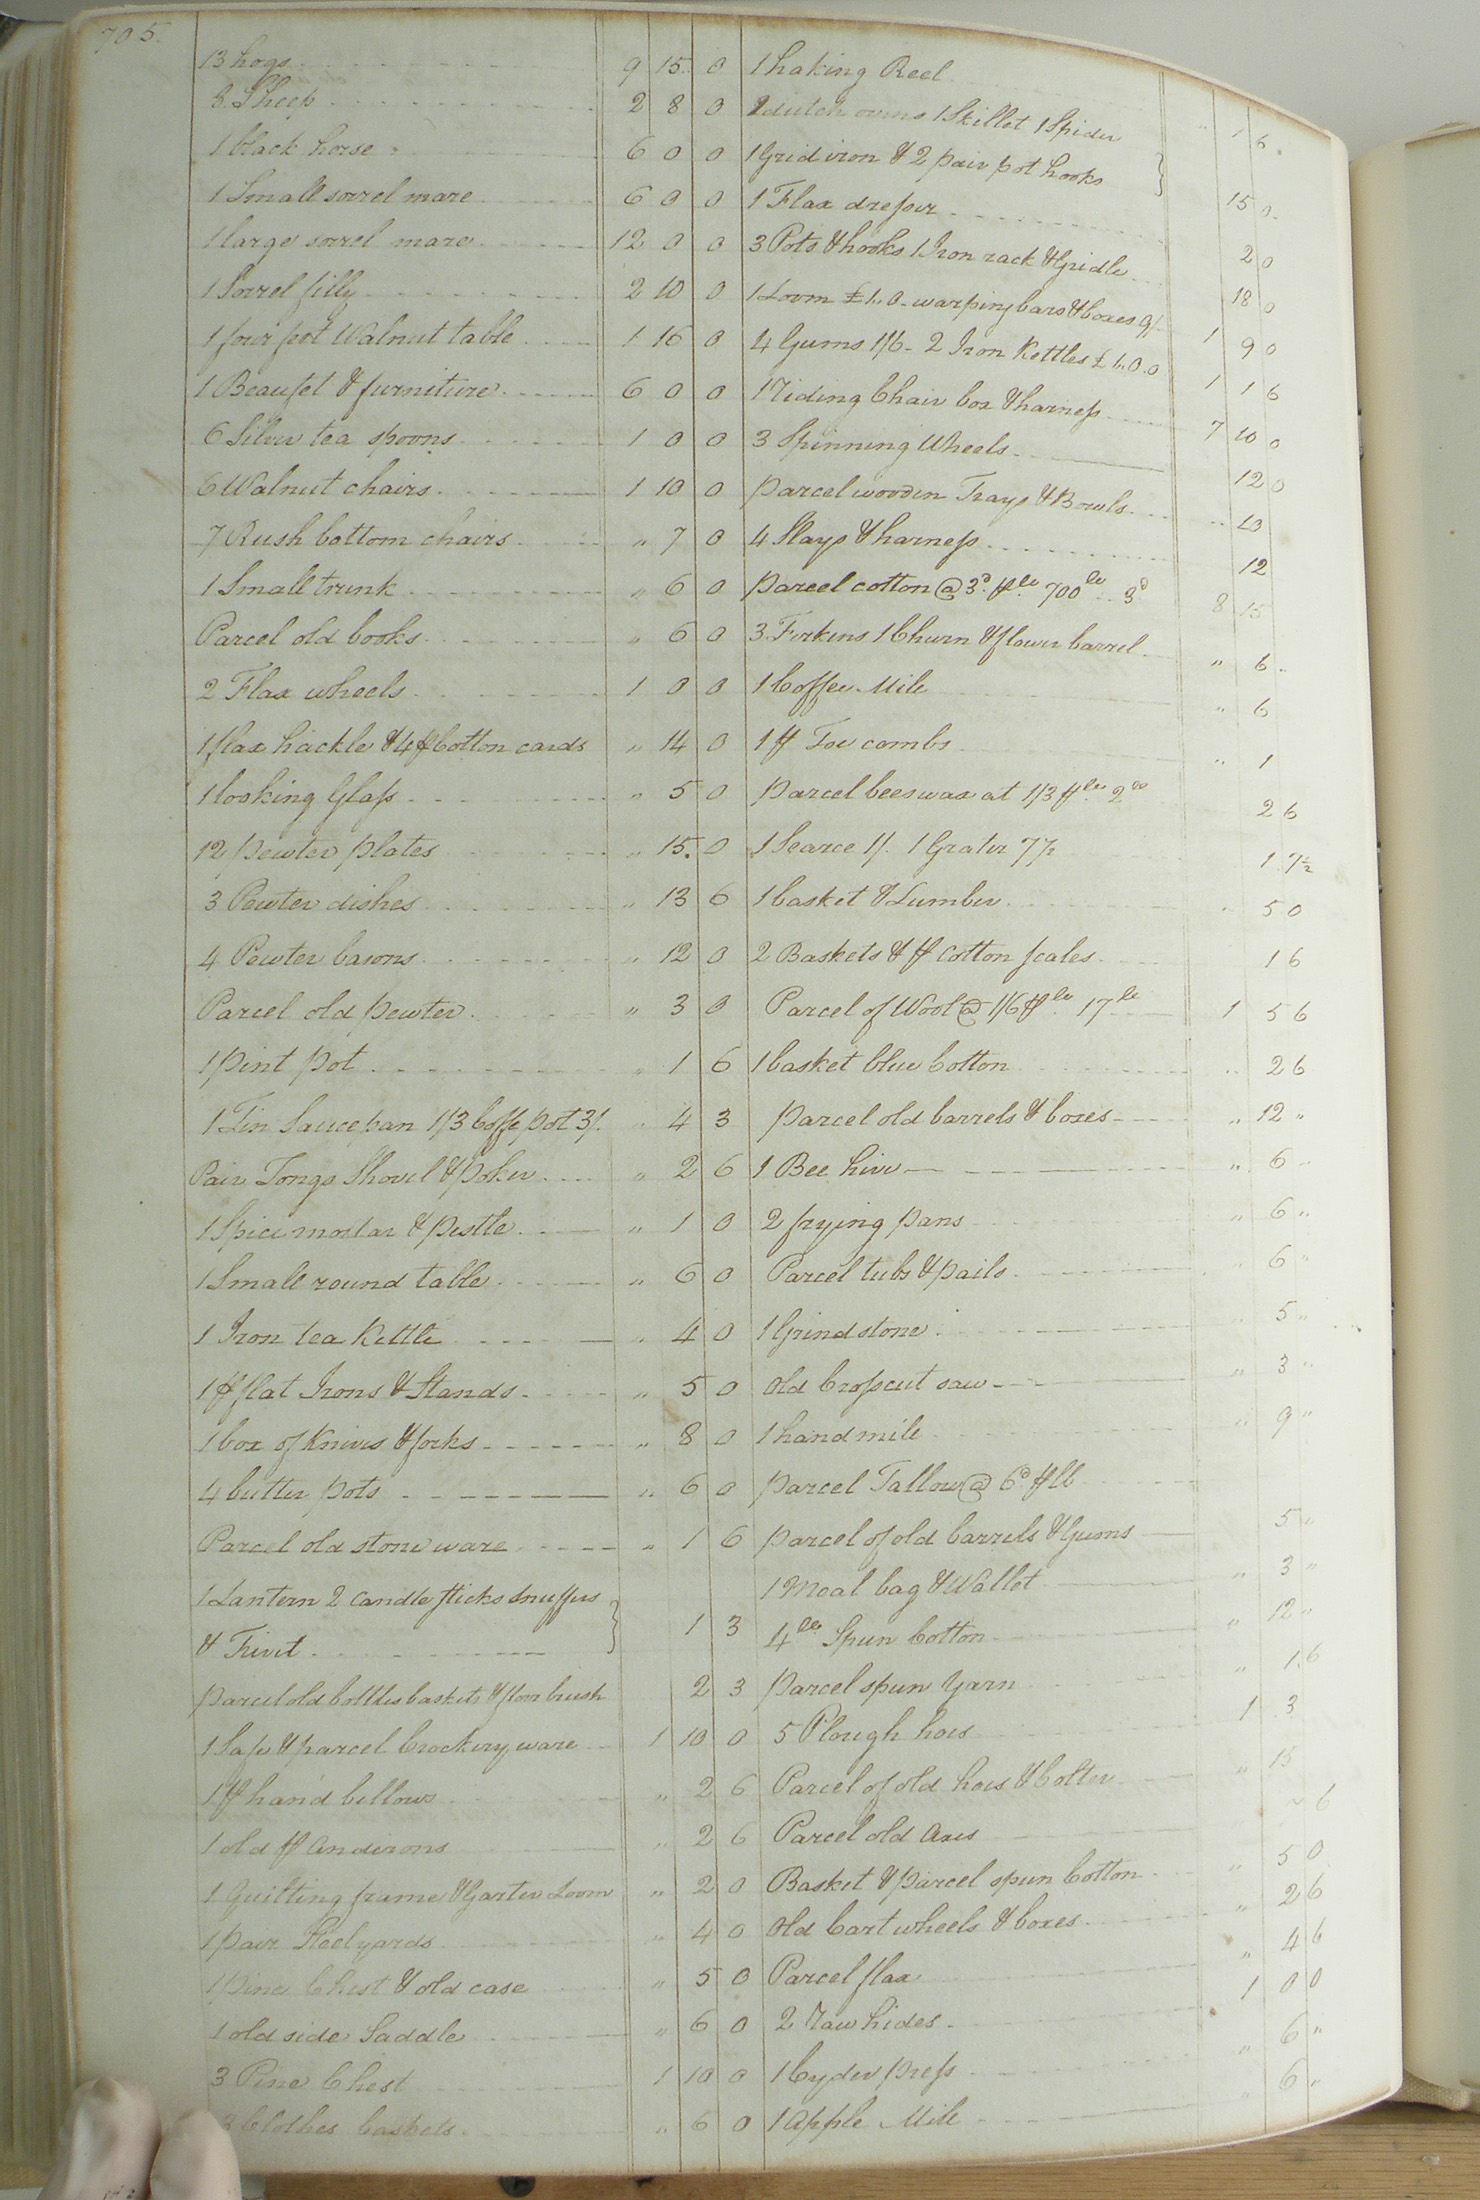 705.
13 hogs 9 15 0
8 Sheep 2 8 0
1 black horse 6 0 0
1 Small sorrel mare 6 0 0
1 large sorrel mare 12 0 0
1 Sorrel filly 2 10 0
1 four pot Walnut table 1 16 0
1 Beaufet & furniture 6 0 0
6 Silver tea spoons 1 0 0
6 Walnut chairs 1 10 0
7 Rush bottom chairs " 7 0
1 Small trunk " 6 0
Parcel old books " 6 0
2 Flax wheels 1 0 0
1 flax hackle & 4 pr Cotton cards " 14 0
1 looking Glass " 5 0
12 Pewter plates " 15 0
3 Pewter dishes " 13 6
4 Pewter basons " 12 0
Parcel old pewter " 3 0
1 pint pot " 1 6
1 Tin Saucepan 1/3 Coffe pot 3/. " 4 3
Pair Tongs Shovel & Poker " 2 6
1 Spice mortar & pestle " 1 0
1 Small round table " 6 0
1 Iron tea Kettle " 4 0
1 pr flat Irons & Stands " 5 0
1 box of Knives & forks " 8 0
4 butter pots " 6 0
Parcel old stone ware " 1 6
1 Lantern 2 candle sticks snuffers
& Trivit 1 3
parcel old bottles baskets & floor brush 2 3
1 Safe & parcel Crockery ware 1 10 0
1 pr hand bellows " 2 6
1 old pr andirons " 2 6
1 Quilting frame & Garter Loom " 2 0
1 pair Steelyards " 4 0
1 Pine Chest & old case " 5 0
1 old side Saddle " 6 0
3 Pine Chest 1 10 0
Clothes baskets " 6 0
1 haking Reel " 1 6
2 dutch ovens 1 Skillet 1 Spider
1 Grid iron & 2 pair pot hooks 15 0
1 Flax dresser 2 0
3 Pots & hooks 1 Iron rack & Gridle 18 0
1 Loom £1..0 - warping bars & boxes 9/- 1 9 0
4 Gums 1/6 - 2 Iron Kettles £1..0.0 1 1 6
1 riding Chair box & harness 7 10 0
3 Spinning Wheels 12 0
parcel wooden Trays & Bowls 10
4 Slays & harness 12
parcel cotton @ 3d pr lb 700 lb 3d 8 15
3 Firkins 1 Churn & flower barrel " 6
1 Coffee Mile " 6
1 pr Tow combs " 1
Parcel beeswax at 1/3 pr lb 2 lb 2 6
1 Searce 1/. 1 Grater 7½ 1 7½
1 basket & Lumber 5 0
2 Baskets & pr cotton scales 1 6
Parcel of Wool @ 1/6 pr lb 17 lb 1 5 6
1 basket blue Cotton " 2 6
parcel old barrels & boxes " 12 "
1 Bee hive " 6
2 frying pans " 6 "
Parcel tubs & pails " 6 "
1 Grindstone " 5 "
old Crosscut saw " 3 "
1 hand mile " 9 "
parcel Tallow @ 6d pr lb
parcel of old barrels & Gums 5 "
1 Meal bag & Wallet " 3 "
4 lb Spun Cotton " 12 "
parcel spun yarn " 1.6
5 Plough hoes 1 3
Parcel of old hoes & Colter " 15
Parcel old axes " 6
Basket & parcel spun Cotton " 5 0
old Cart wheels & boxes " 2 6
Parcel flax " 4 6
2 raw hides 1 0 0
1 Cyder press " 6 "
1 Apple Mile " 6 "